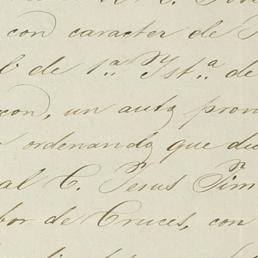 con caracter de
de 1.ª Yst.ª de
con, un auto prov
ordenando que di
al C. Jesus Jim
bor de Cruces, con